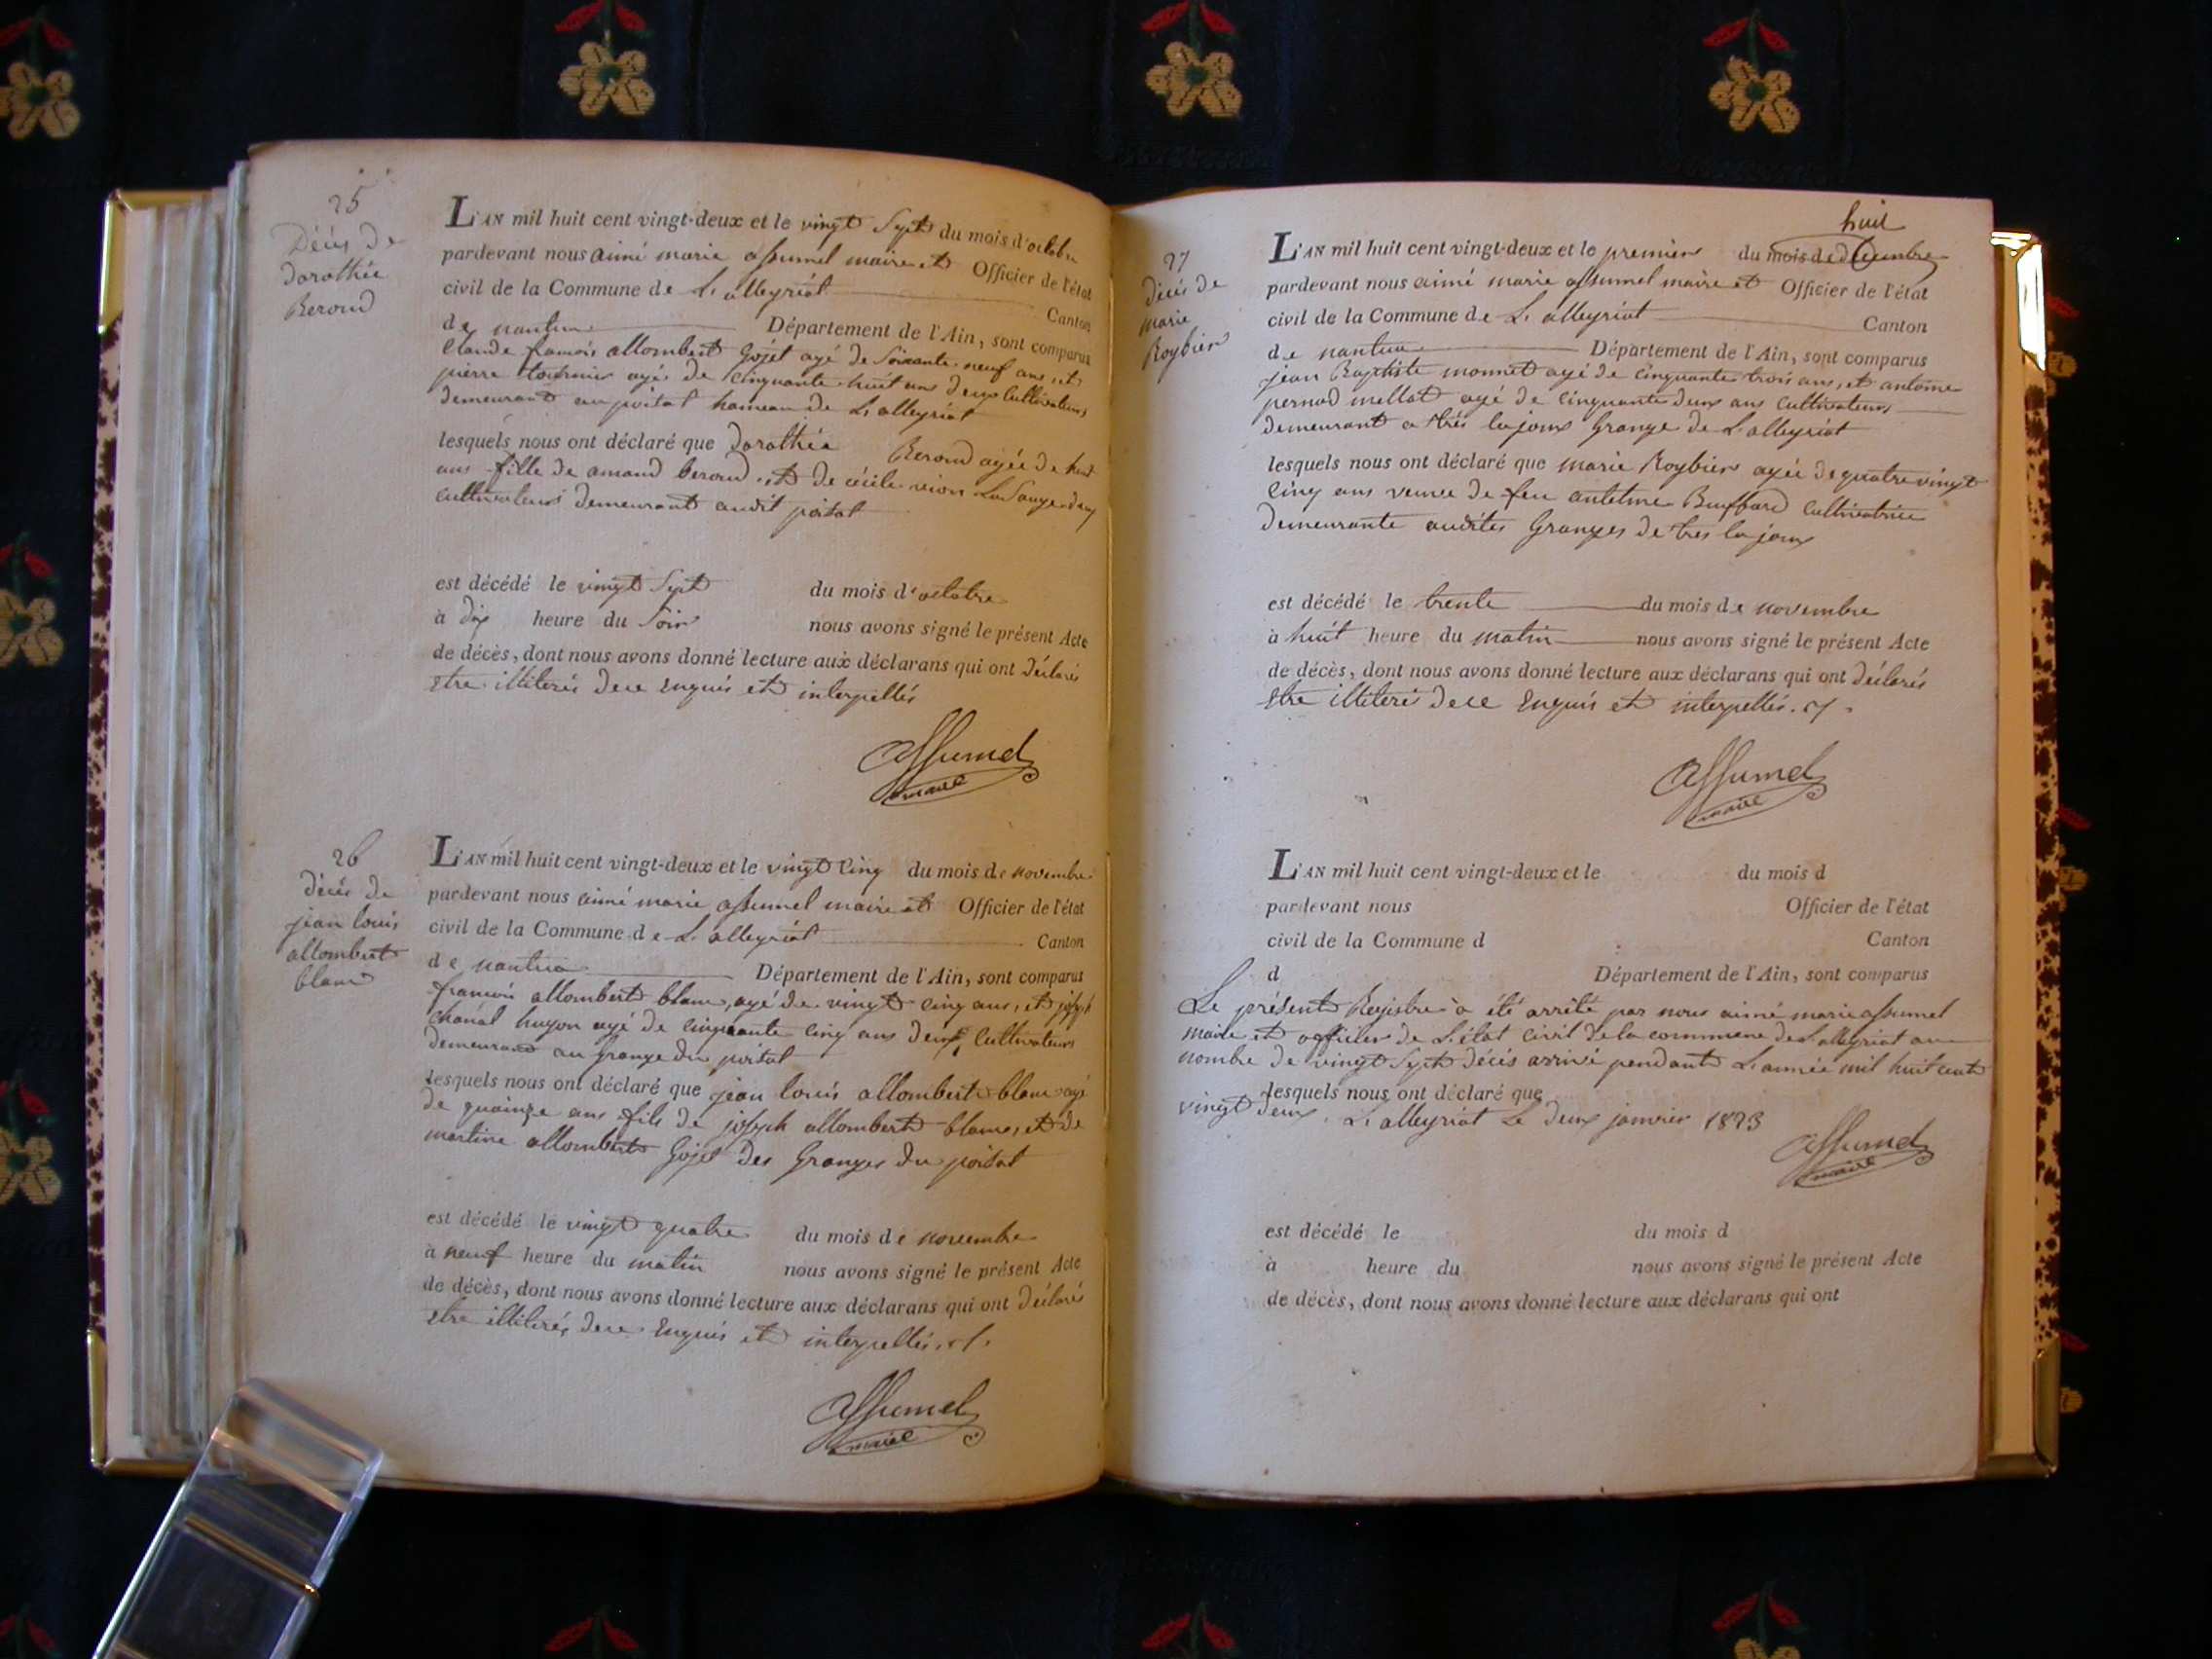 25
Décès de
Dorothée
Beroud
L'AN mil huit cent vingt-deux et le vingt Sept du mois d'octobre
pardevant nous aimé marie assumel maire et Officier de l'état
civil de la Commune de L'alleyriat Canton
de nantua Département de l'Ain, sont comparus
Claude françois allombert Gojet agé de Soixante neuf ans, et
pierre tournier agé de Cinquante huit ans deux Cultivateurs
demeurant au poisat hameau de L'alleyriat
lesquels nous ont déclaré que Dorothée Beroud agée de huit
ans fille de amand beroud et de cécile
Cultivateurs demeurant audit poisat
est décédé le vingt Sept du mois d'octobre
à dix heure du Soir nous avons signé le présent Acte
de décès, dont nous avons donné lecture aux déclarans qui ont déclarés
Etre illiterés dece Enquis et interpellés
Assumel
maire
26
décès de
jean louis
allombert
blanc
L'AN mil huit cent vingt-deux et le vingt Cinq du mois de novembre
pardevant nous aimé marie assumel maire et Officier de l'état
civil de la Commune de L'alleyriat Canton
de nantua Département de l'Ain, sont comparus
françois allombert blanc, agé de vingt cinq ans, et joseph
Chanal hugon agé de Cinquante Cinq ans deux Cultivateurs
demeurant au Grange du poisat
lesquels nous ont déclaré que jean louis allombert blanc agé
de quainze ans fils de joseph allombert blanc, et de
martine allombert Gojet des Granges du poisat
est décédé le vingt quatre du mois de novembre
à neuf heure du matin nous avons signé le présent Acte
de décès, dont nous avons donné lecture aux déclarans qui ont déclarés
Etre illiterés, dece Enquis et interpellés.
Assumel
maire
27
décès de
marie
Roybier
huit
L'AN mil huit cent vingt-deux et le premier du mois de décembre
pardevant nous aimé marie assumel maire et Officier de l'état
civil de la Commune de L'alleyriat Canton
de nantua Département de l'Ain, sont comparus
jean Baptiste monnet agé de Cinquante trois ans, et antoine
pernod mellat agé de Cinquante deux ans Cultivateurs
demeurant a très lajoux Grange de L'alleyriat
lesquels nous ont déclaré que marie Roybier agée de quatre vingt
Cinq ans veuve de feu antelme Buffard Cultivatrice
demeurante audites Granges de tres lajoux
est décédé le trente du mois de novembre
à huit heure du matin nous avons signé le présent Acte
de décès, dont nous avons donné lecture aux déclarans qui ont déclarés
Etre illiterés dece Enquis et interpellés.
Assumel
maire
L'AN mil huit cent vingt-deux et le du mois d
pardevant nous Officier de l'état
civil de la Commune d Canton
d Département de l'Ain, sont comparus
Le présent Registre à été arrêté par nous aimé marie assumel
maire et officier de L'état Civil de la commune de L'alleyriat au
nombre de vingt Sept décès arrivé pendant L'année mil huit cent
lesquels nous ont déclaré que
vingt deux. L'alleyriat Le deux janvier 1823
Assumel
maire
est décédé le du mois d
à heure du nous avons signé le présent Acte
de décès, dont nous avons donné lecture aux déclarans qui ont